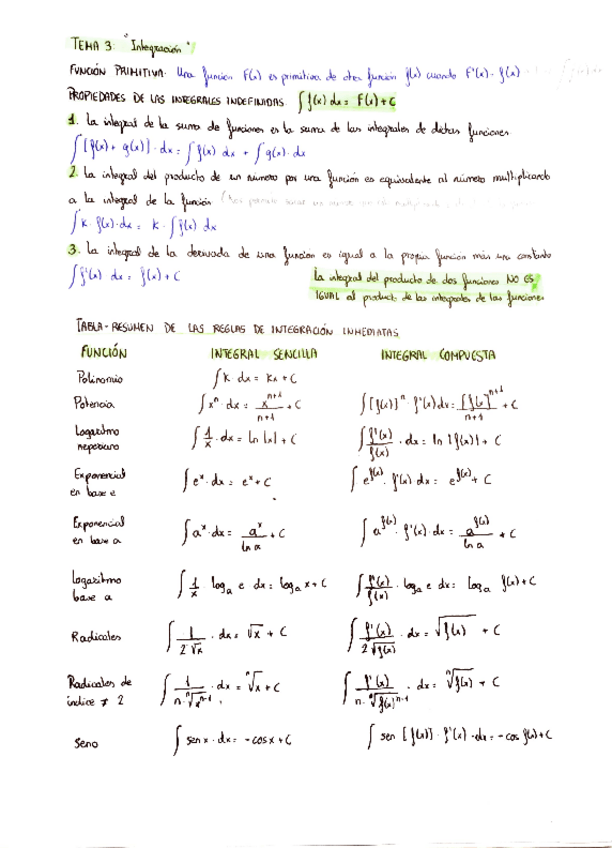 TEMA 3: "Integración"
FUNCIÓN PRIMITIVA: Una función F(x) es primitiva de otra función f(x) cuando F'(x) = f(x)
PROPIEDADES DE LAS INTEGRALES INDEFINIDAS ∫f(x) dx = F(x) + C
1. La integral de la suma de funciones es la suma de las integrales de dichas funciones
∫[f(x) + g(x)] · dx = ∫f(x) dx + ∫g(x) · dx
2. La integral del producto de un número por una función es equivalente al número multiplicando
a la integral de la función
∫k · f(x) · dx = k · ∫f(x) dx
3. La integral de la derivada de una función es igual a la propia función más una constante
∫f'(x) dx = f(x) + C
La integral del producto de dos funciones NO ES
IGUAL al producto de las integrales de las funciones
TABLA-RESUMEN DE LAS REGLAS DE INTEGRACIÓN INMEDIATAS
FUNCIÓN INTEGRAL SENCILLA INTEGRAL COMPUESTA
Polinomio ∫k · dx = kx + C
Potencia ∫xⁿ · dx = xⁿ⁺¹/(n+1) + C ∫[f(x)]ⁿ · f'(x) dx = [f(x)]ⁿ⁺¹/(n+1) + C
Logaritmo neperiano ∫1/x · dx = ln|x| + C ∫f'(x)/f(x) · dx = ln|f(x)| + C
Exponencial en base e ∫eˣ · dx = eˣ + C ∫e^f(x) · f'(x) dx = e^f(x) + C
Exponencial en base a ∫aˣ · dx = aˣ/ln a + C ∫a^f(x) · f'(x) · dx = a^f(x)/ln a + C
Logaritmo base a ∫1/x logₐ e dx = logₐ x + C ∫f'(x)/f(x) · logₐ e dx = logₐ f(x) + C
Radicales ∫1/(2√x) · dx = √x + C ∫f'(x)/(2√f(x)) · dx = √f(x) + C
Radicales de índice ≠ 2 ∫1/(n · ⁿ√xⁿ⁻¹) · dx = ⁿ√x + C ∫f'(x)/(n · ⁿ√f(x)ⁿ⁻¹) · dx = ⁿ√f(x) + C
Seno ∫sen x · dx = -cos x + C ∫sen [f(x)] · f'(x) · dx = -cos f(x) + C